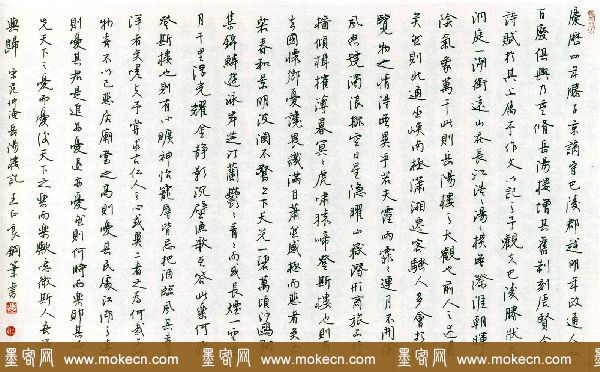 慶歷四年滕子京謫守巴陵郡越明年政通人
百廢俱興乃重修岳陽樓增其舊制刻唐賢今
詩賦於其上屬予作文以記之予觀夫巴陵勝狀
洞庭一湖銜遠山吞長江浩浩湯湯橫無際涯朝暉
陰氣象萬千此則岳陽樓之大觀也前人之述
矣然則北通巫峽南極瀟湘遷客騷人多會於
覽物之情得無異乎若夫霪雨霏霏連月不開
風怒號濁浪排空日星隱曜山嶽潛形商旅不
檣傾楫摧薄暮冥冥虎嘯猿啼登斯樓也則
去國懷鄉憂讒畏譏滿目蕭然感極而悲者矣
若春和景明波瀾不驚上下天光一碧萬頃沙鷗翔
集錦鱗游泳岸芷汀蘭鬱鬱青青而或長煙一空
月千里浮光耀金靜影沉璧漁歌互答此樂何
登斯樓也則有心曠神怡寵辱皆忘把酒臨風其喜
洋洋者矣嗟夫予嘗求古仁人之心或異二者之為何哉
物喜不以己悲居廟堂之高則憂其民處江湖之遠
則憂其君是進亦憂退亦憂然則何時而樂耶其
先天下之憂而憂後天下之樂而樂歟噫微斯人吾誰
與歸 宋范仲淹岳陽樓記 王正良鋼筆書
墨客网 www.mokecn.com 墨客网 www.mokecn.com 墨客网 www.mokecn.com